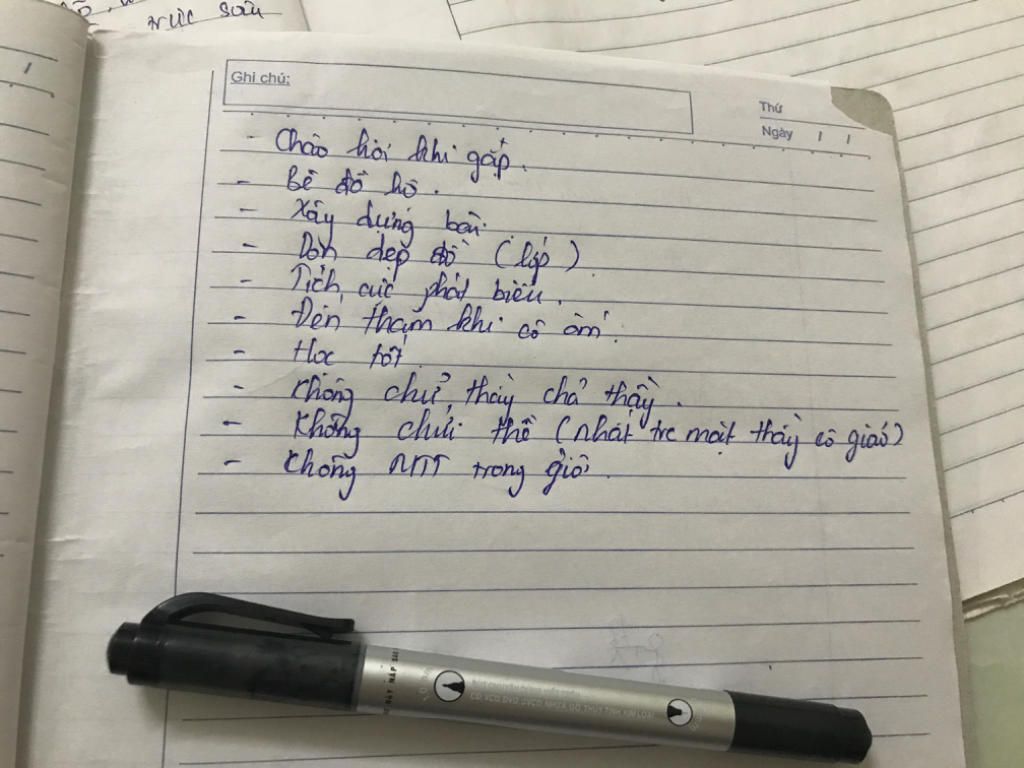 trực sau
Ghi chú:
Thứ
Ngày / /
- Chào hỏi khi gặp.
- Bê đồ hộ.
- Xây dựng bài.
- Dọn dẹp đồ (lớp).
- Tích cực phát biểu.
- Đến thăm khi cô ốm.
- Học tốt.
- Không chửi thầy chả thầy.
- Không chửi thề (nhất trc mặt thầy cô giáo)
- Không NTT trong giờ.